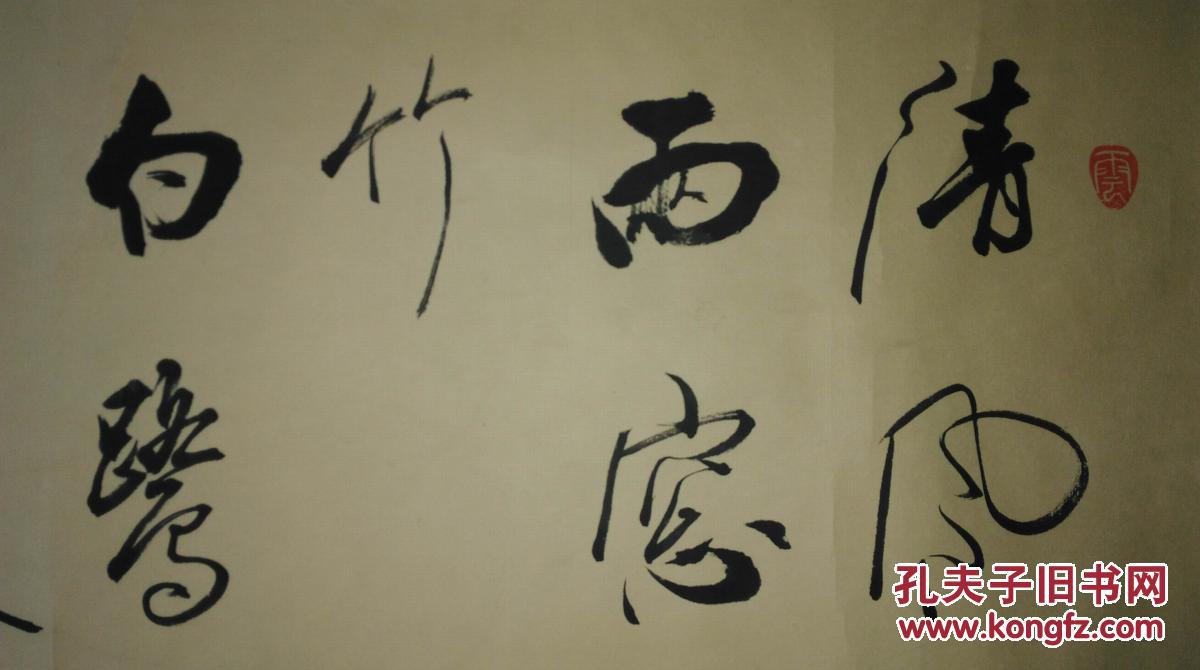 清风
西窓
竹
白鹭
孔夫子旧书网
www.kongfz.com